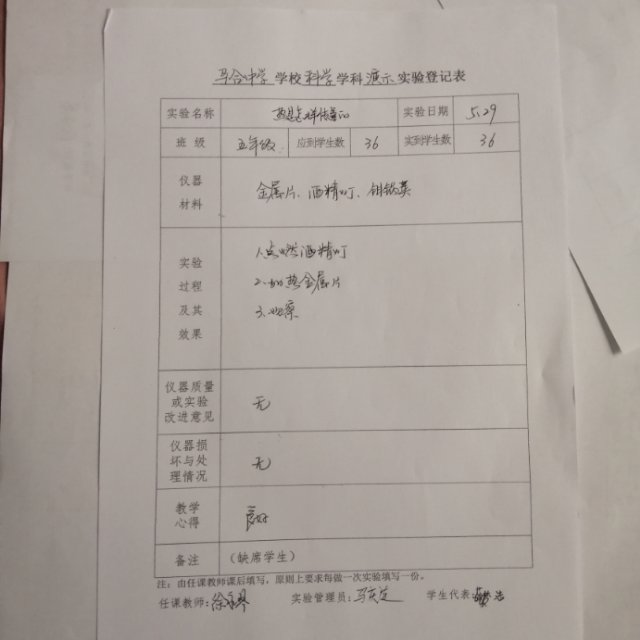 马合中学学校科学学科演示实验登记表
实验名称 热是怎样传递的 实验日期 5.29
班级 五年级 应到学生数 36 实到学生数 36
仪器材料 金属片、酒精灯、
实验过程及其效果 1.点燃酒精灯
2.加热金属片
3.观察
仪器质量或实验改进意见 无
仪器损坏与处理情况 无
教学心得 良好
备注 (缺席学生)
注:由任课教师课后填写,原则上要求每做一次实验填写一份。
任课教师: 实验管理员: 学生代表: